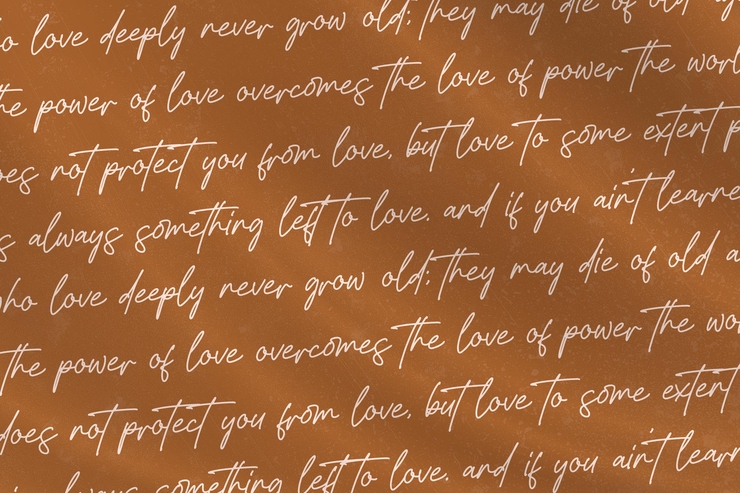 o love deeply never grow old; they may die of old ag
he power of love overcomes the love of power the worl
oes not protect you from love. but love to some extent p
s always something left to love. and if you ain't learne
ho love deeply never grow old; they may die of old a
the power of love overcomes the love of power the wo
does not protect you from love. but love to some extent
always something left to love. and if you ain't learn